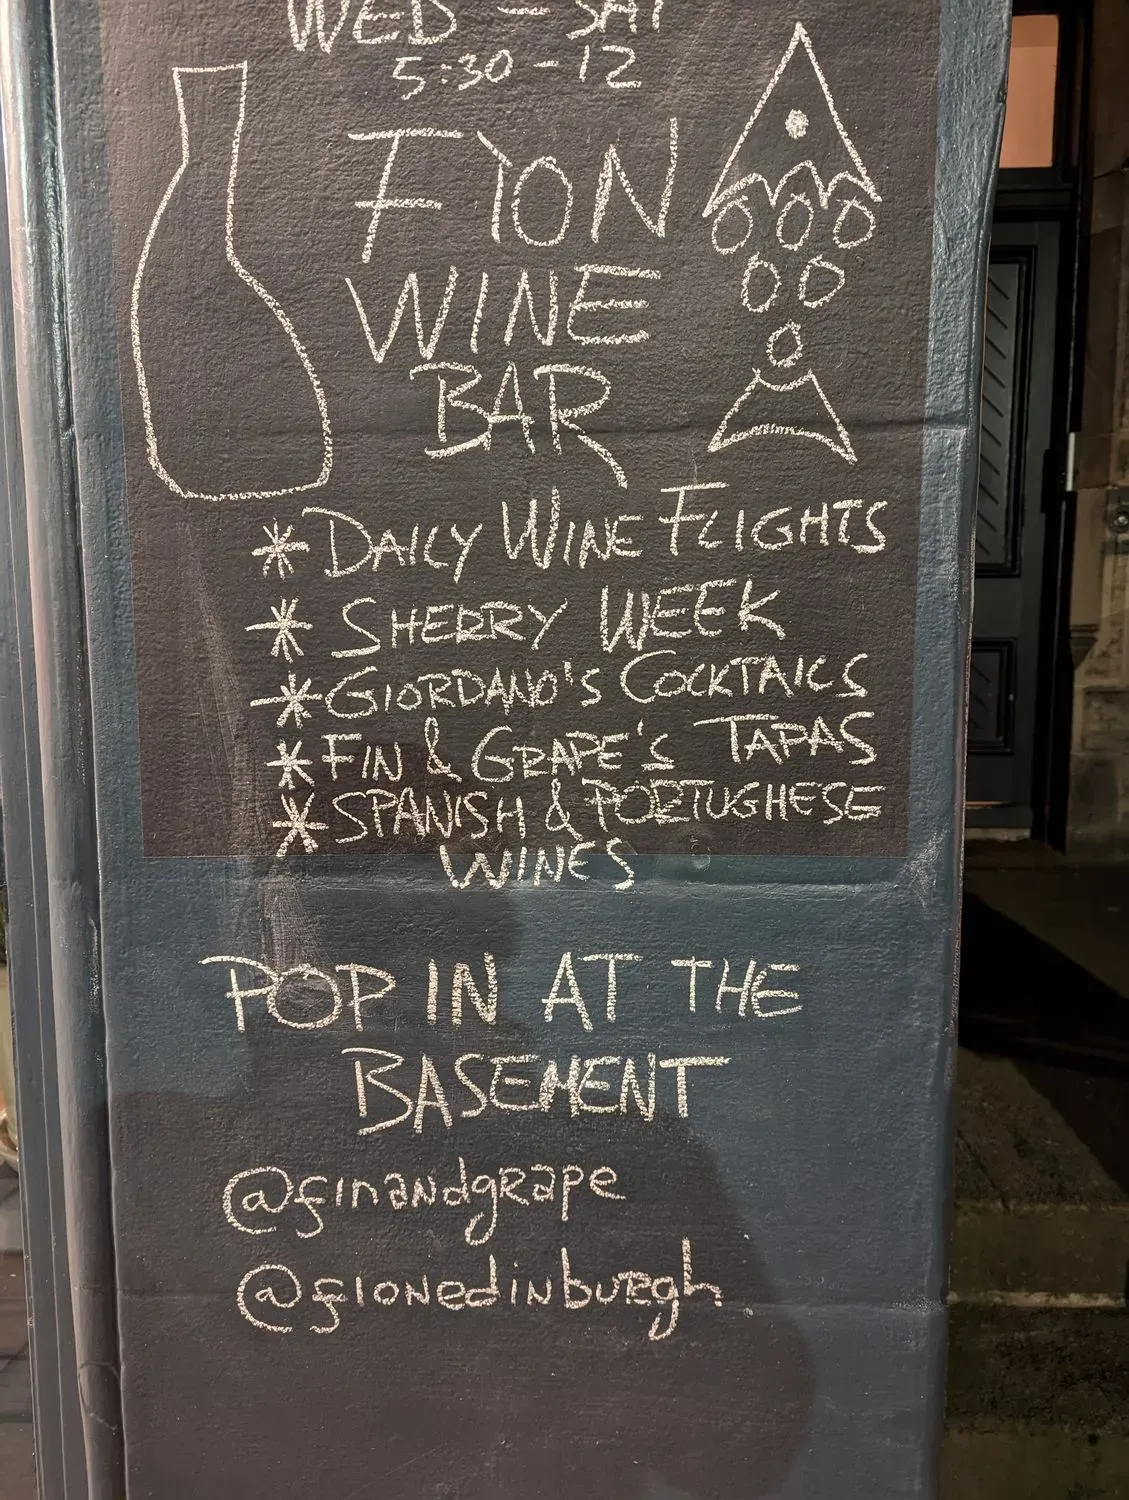 WED - SAT
5:30 - 12
FION
WINE
BAR
* DAILY WINE FLIGHTS
* SHERRY WEEK
* GIORDANO'S COCKTAILS
* FIN & GRAPE'S TAPAS
* SPANISH & PORTUGHESE
WINES
POP IN AT THE
BASEMENT
@finandgrape
@fionedinburgh